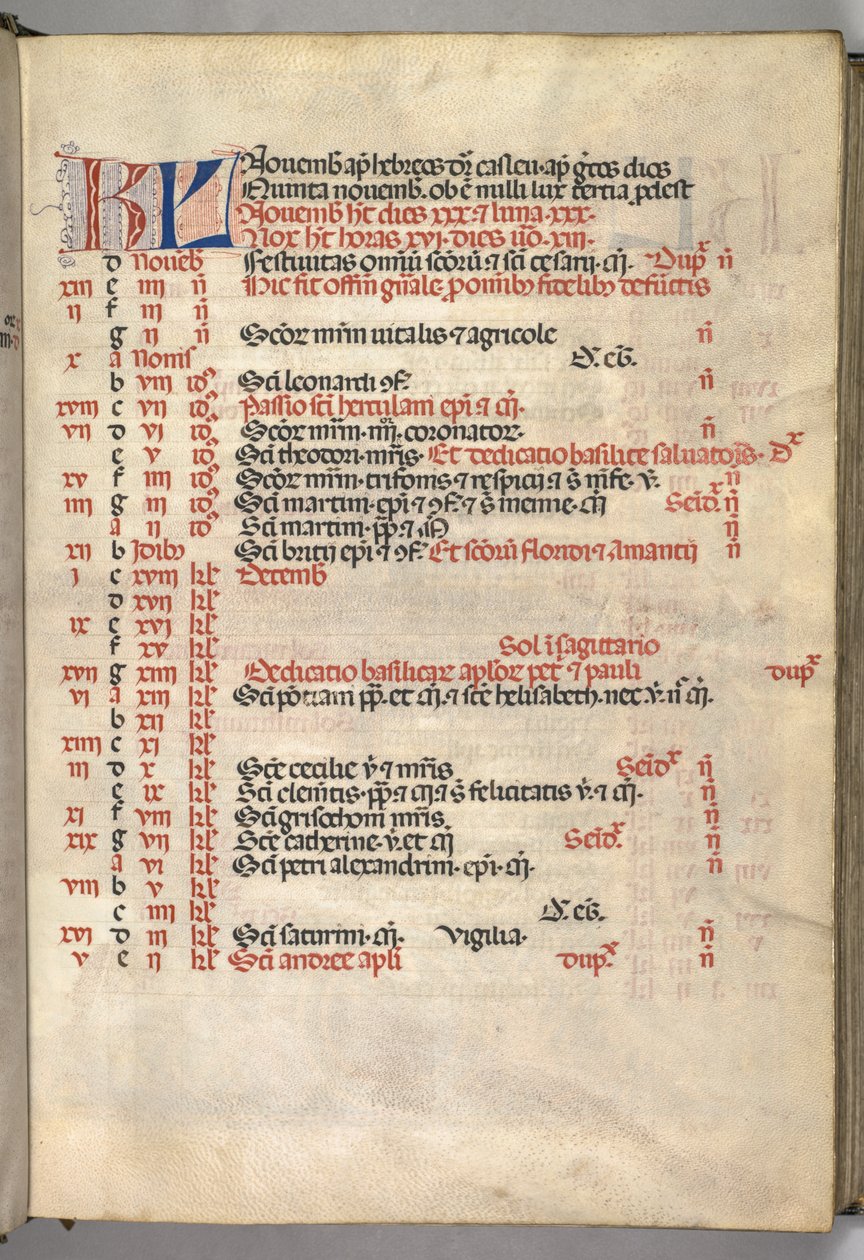 KL Nouemb̄ ap̄ hebreos dr̄ casleu · ap̄ g̃cos dios
Quinta nouemb̄. ob ē nulli lux tertia p̱dest
Nouemb̄ h̄t dies xxx · ⁊ luna · xxx ·
Nox h̄t horas xvj · dies u̅o · viii ·
d Nouēb̄ Festiuitas omīū sc̄orū ⁊ sc̄i cesarij · m̄. Dupˣ n̄
xiii e iiii n̄ Hic fit offm̄ gn̄ale p̱ omīb⁹ fidelib⁹ defūctis
ii f iii n̄
g ii n̄ Sc̄or mr̄m uitalis ⁊ agricole n̄
x a Nonis D. eḡ.
b viii id⁹ Sc̄i leonardi ꝯf. n̄
xviii c vii id⁹ Passio sc̄i herculani ep̄i ⁊ m̄.
vii d vi id⁹ Sc̄or mr̄m · iiiior. coronator · n̄
e v id⁹ Sc̄i theodori · mr̄is · Et dedicatio basilice saluatoris · Dˣ
xv f iiii id⁹ Sc̄or mr̄m · trifonis ⁊ respicij ⁊ s̄ nīfe · v̄. n̄
iiii g iii id⁹ Sc̄i martini · ep̄i ⁊ ꝯf. ⁊ s̄ menne · m̄ Semidˣ. n̄
a ii id⁹ Sc̄i martini · pp̄. ⁊ m̄ n̄
xii b Idib⁹ Sc̄i britij ep̄i ⁊ ꝯf. Et sc̄orū floridi ⁊ Amantij n̄
j c xviii kl̄ Decemb̄
d xvii kl̄
ix e xvi kl̄
f xv kl̄ Sol ī sagittario
xvii g xiiii kl̄ Dedicatio basilicar ap̄lor pet̄ ⁊ pauli dupˣ
vi a xiii kl̄ Sc̄i pōtiani pp̄. et m̄. ⁊ sc̄e helisabeth · nec v̄. n̄ m̄.
b xii kl̄
xiiii c xi kl̄
iii d x kl̄ Sc̄e cecilie v̄ ⁊ mr̄is Semidˣ n̄
e ix kl̄ Sc̄i clemētis · pp̄. ⁊ m̄. ⁊ s̄ felicitatis v̄. ⁊ m̄. n̄
xi f viii kl̄ Sc̄i grisochoni mr̄is n̄
xix g vii kl̄ Sc̄e catherine · v̄. et m̄ Semidˣ. n̄
a vi kl̄ Sc̄i petri alexandrini · ep̄i · m̄. n̄
viii b v kl̄
c iiii kl̄ D. eḡ.
xvi d iii kl̄ Sc̄i saturini · m̄. Vigilia · n̄
v e ii kl̄ Sc̄i andree ap̄li dup.ˣ n̄